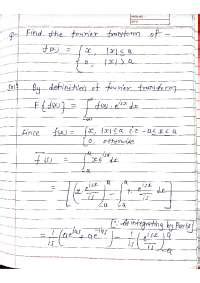 Q- Find the fourier transform of -
f(x) = { x, |x| ≤ a
0, |x| > a
Solⁿ By definition of fourier transform
F{f(x)} = ∫_{-∞}^{∞} f(x) e^{isx} dx
Since f(x) = {x, |x| ≤ a i.e -a ≤ x ≤ a
{0, otherwise
F(s) = ∫_{-a}^{a} x e^{isx} dx
= [[x e^{isx}/is]_{-a}^{a} - ∫_{-a}^{a} 1. e^{isx}/is dx]
[∵ on integrating by Parts]
= 1/is (ae^{ias} + ae^{-ias}) - 1/is (e^{isx}/is)_{-a}^{a}